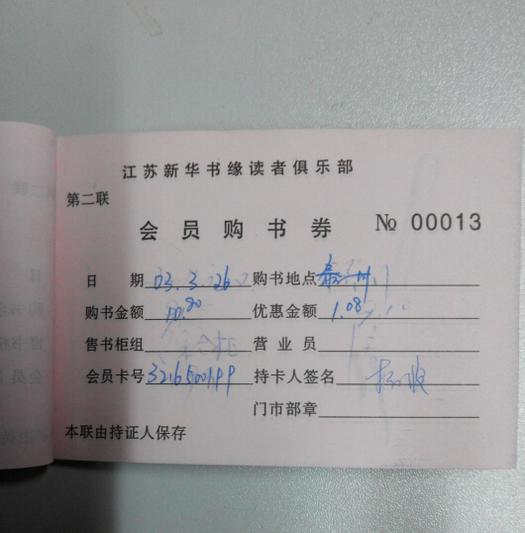 江苏新华书缘读者俱乐部
第二联
会员购书券 № 00013
日 期 03.3.26 购书地点 泰州
购书金额 10.80 优惠金额 1.08
售书柜组 营业员
会员卡号 持卡人签名
门市部章
本联由持证人保存